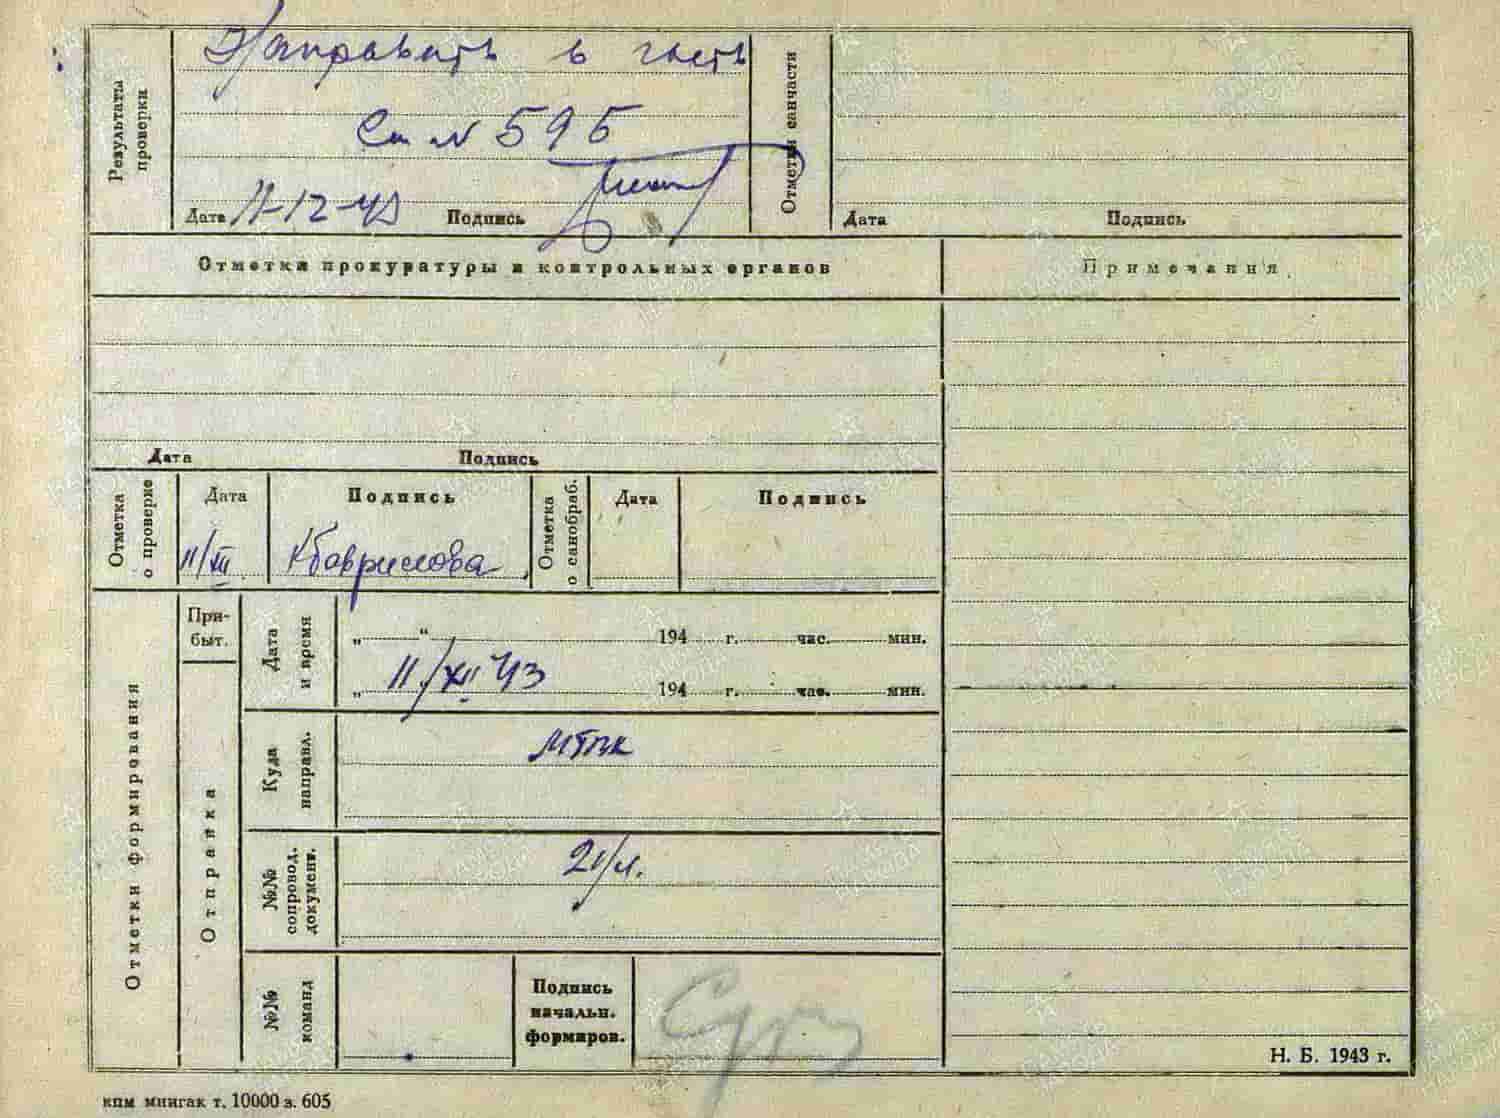 Результаты проверки
Направить в часть
Сп № 595
Дата 11-12-43 Подпись
Отметки санчасти
Дата Подпись
Отметки прокуратуры и контрольных органов
Примечания
Дата Подпись
Отметка о проверке
Дата Подпись
11/XII
Отметка о санобраб.
Дата Подпись
Отметки формирования
При-
быт.
Отправка
Дата и время
„ “ 194 г. час. мин.
„ 11/XII 43 194 г. час. мин.
Куда направл.
МТПК
№№ сопровод. документ.
21/л.
№№ команд
Подпись
начальн.
формиров.
Н. Б. 1943 г.
кпм мнигак т. 10000 з. 605
ПАМЯТЬ НАРОДА